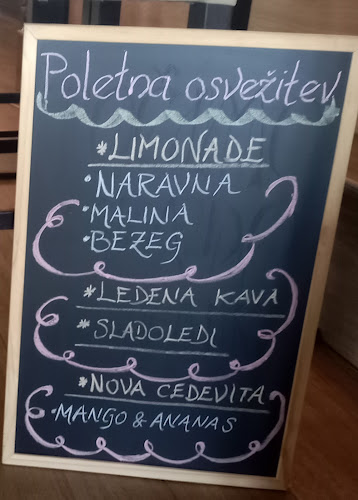 Poletna osvežitev
*LIMONADE
•NARAVNA
•MALINA
•BEZEG
*LEDENA KAVA
*SLADOLEDI
*NOVA CEDEVITA
•MANGO & ANANAS